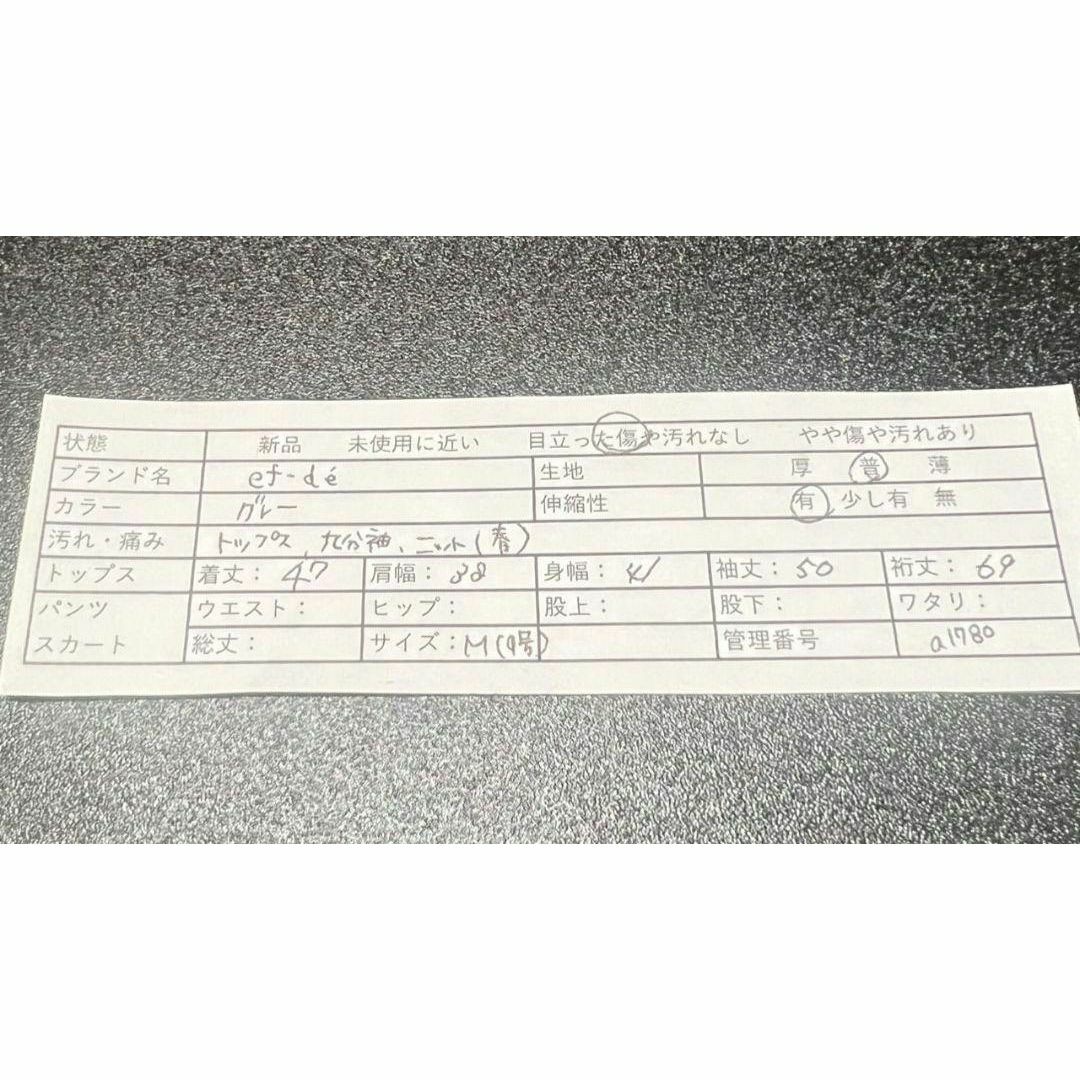 状態 新品 未使用に近い 目立った傷や汚れなし やや傷や汚れあり
ブランド名 ef-dé 生地 厚 普 薄
カラー グレー 伸縮性 有 少し有 無
汚れ・痛み トップス、九分袖、ニット(春)
トップス 着丈: 47 肩幅: 38 身幅: 41 袖丈: 50 裄丈: 69
パンツ ウエスト: ヒップ: 股上: 股下: ワタリ:
スカート 総丈: サイズ:M(9号) 管理番号 a1780